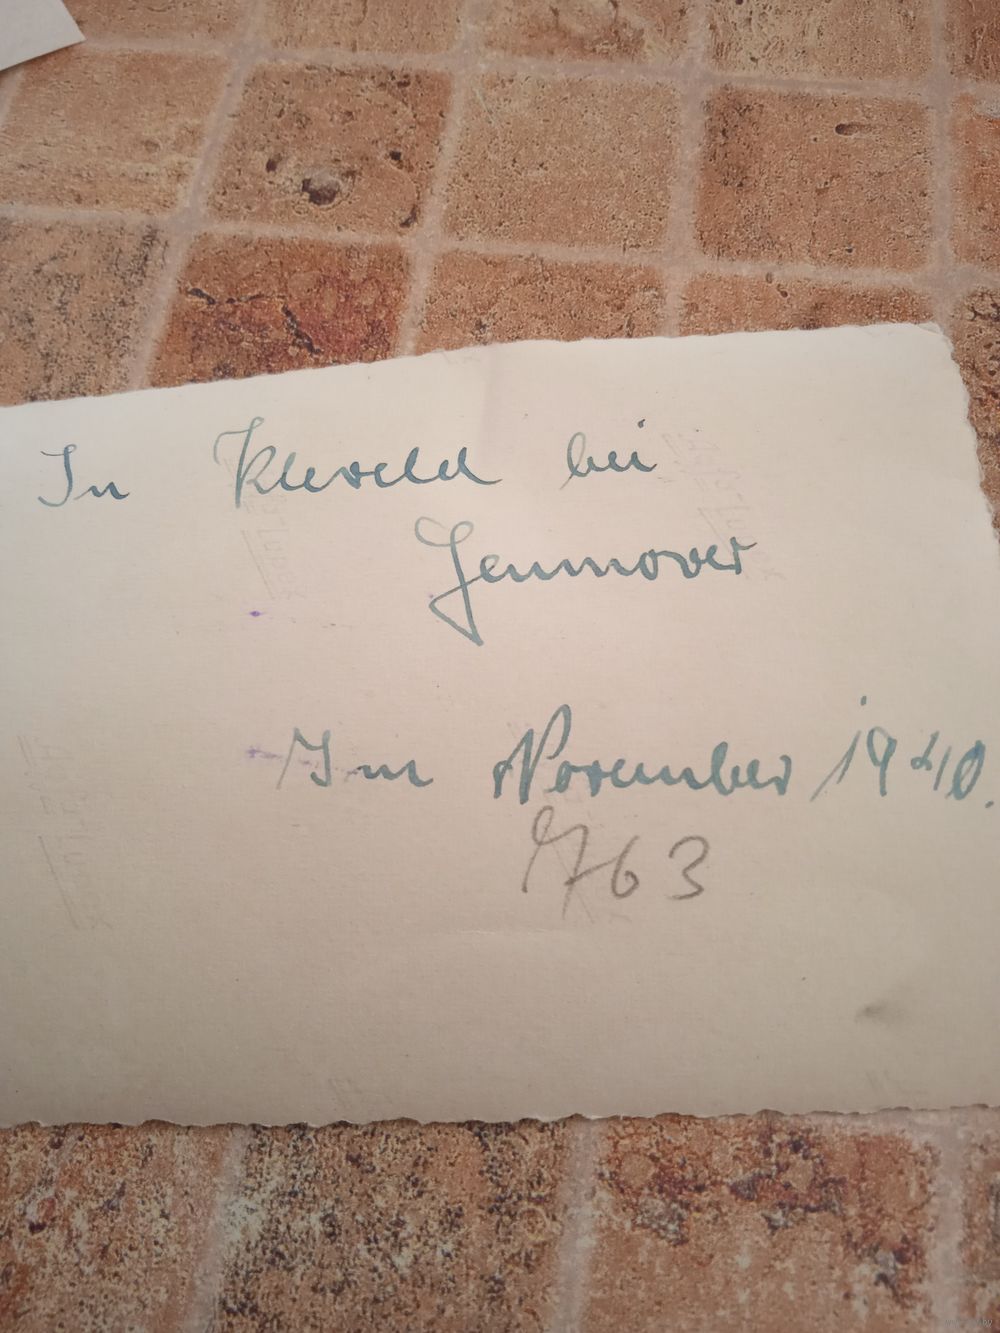 In Kleveld bei
Hennover
Im November 1940.
763